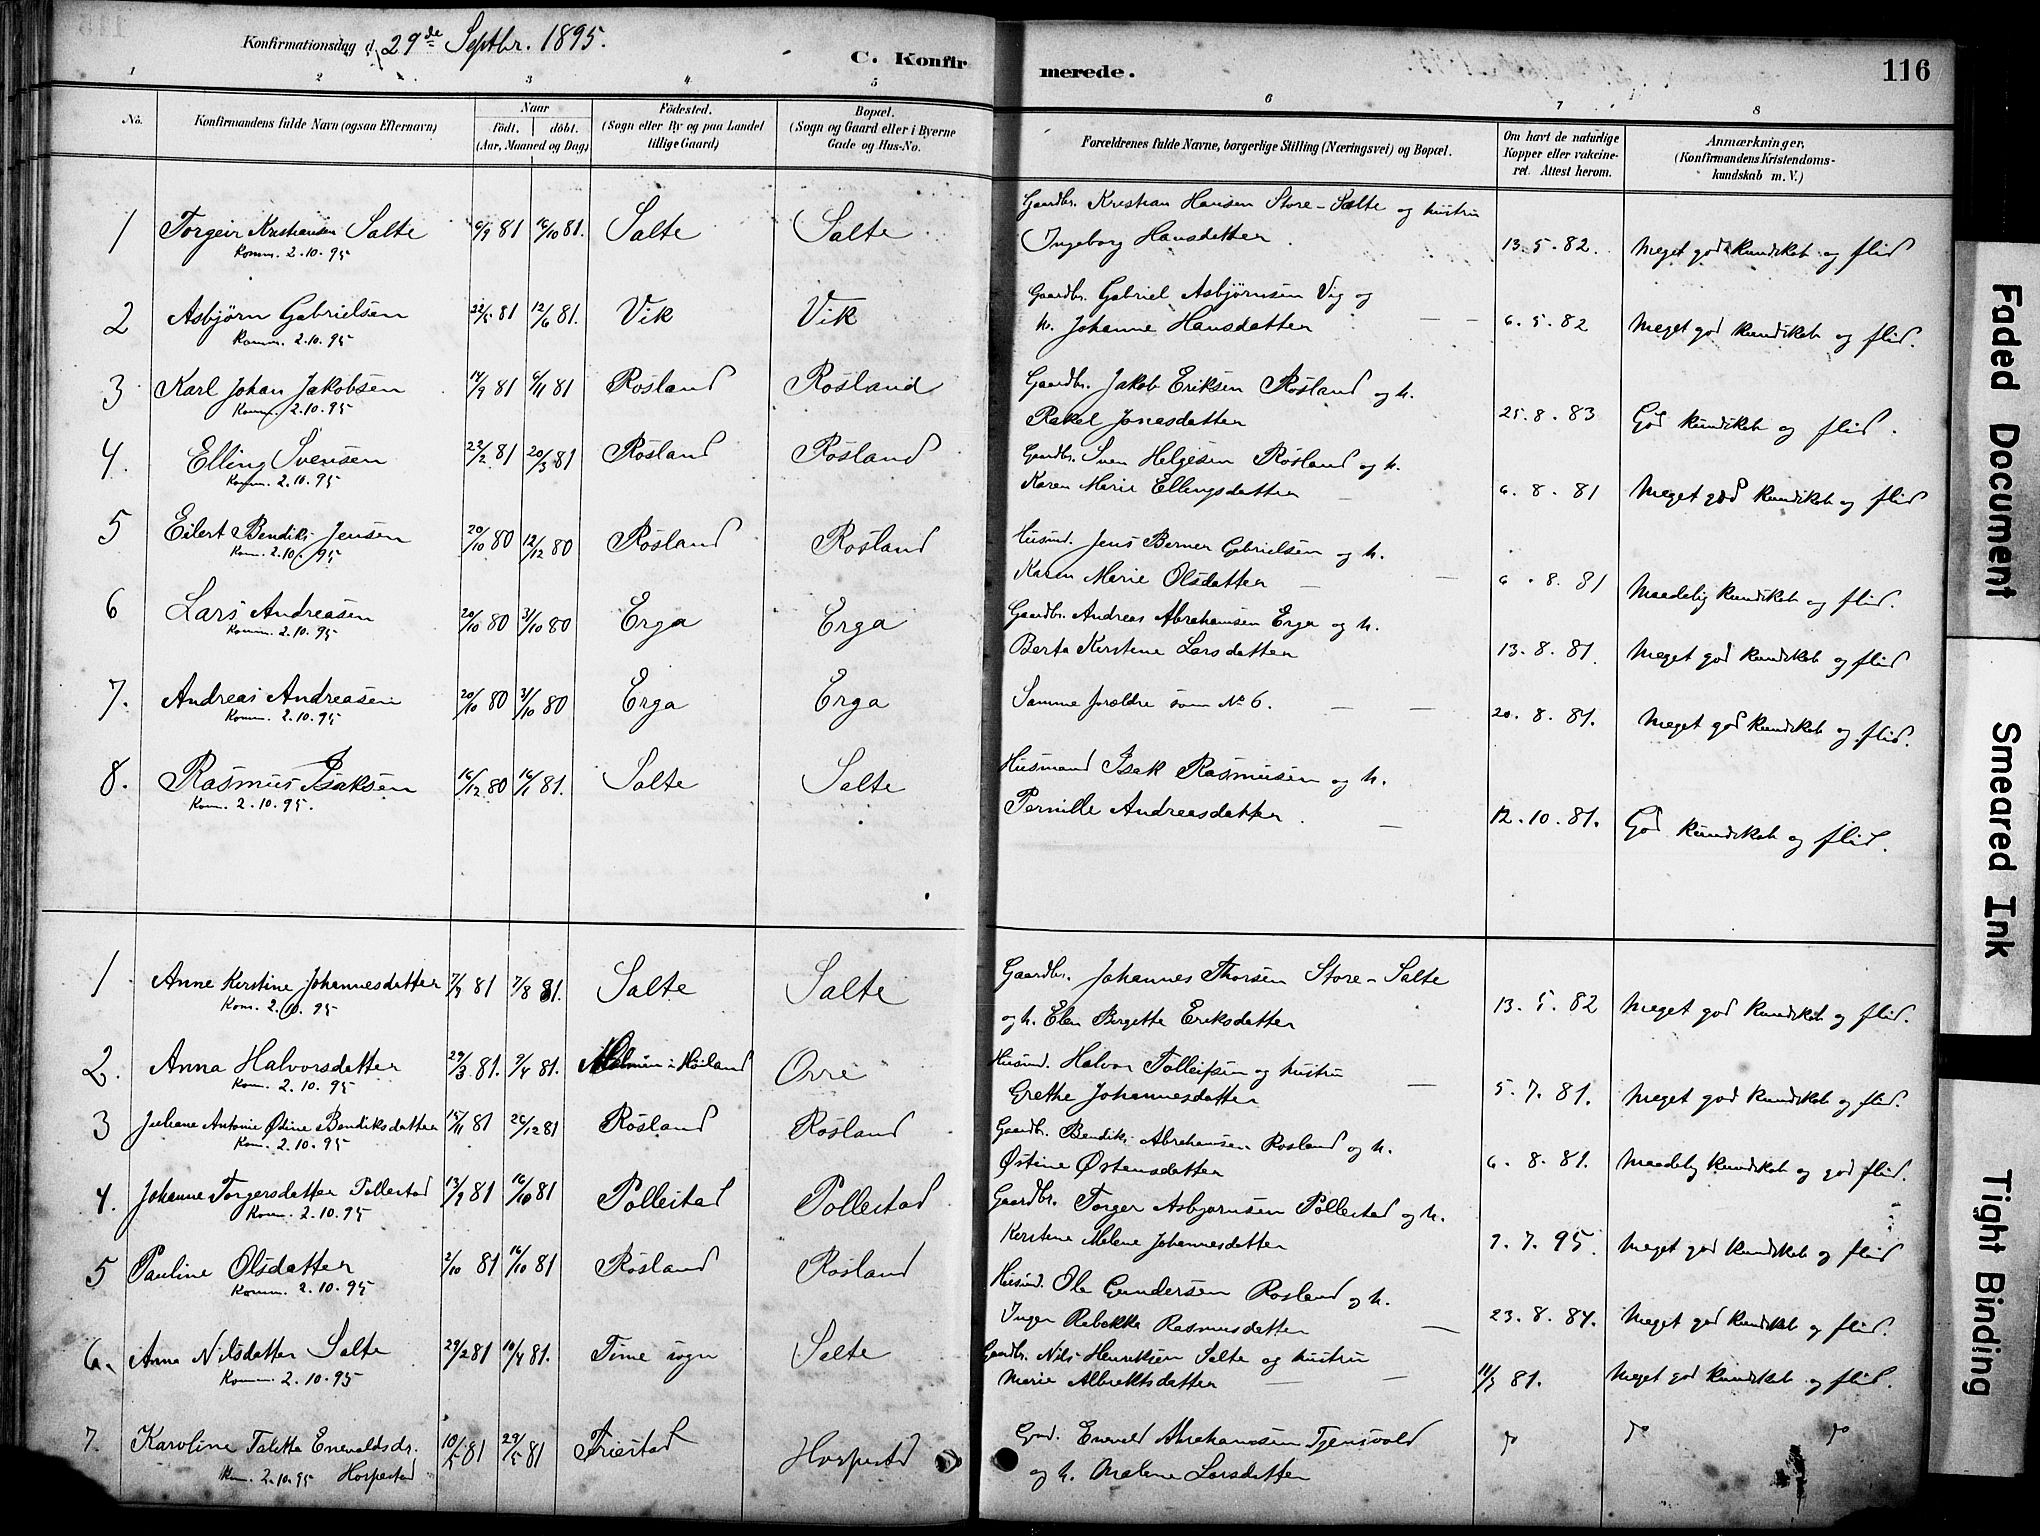 Konfirmationsdag d. 29de Septbr. 1895.
C. Konfirmerede.
116
1 2 3 4 5 6 7 8
No.
Konfirmandens fulde Navn (ogsaa Efternavn)
Naar
födt. döbt.
(Aar, Maaned og Dag)
Födested.
(Sogn eller By og paa Landet
tillige Gaard)
Bopæl.
(Sogn og Gaard eller i Byerne
Gade og Hus-No.
Forældrenes fulde Navne, borgerlige Stilling (Næringsvei) og Bopæl.
Om havt de naturlige
Kopper eller vakcine-
ret. Attest herom.
Anmærkninger,
(Konfirmandens Kristendoms-
kundskab m. V.)
1 Torgeir Kristiansen Salte 6/9 81 16/10 81. Salte Salte Gaardbr. Kristian Hansen Store-Salte og hustru
Komm. 2.10.95 Ingeborg Hansdatter. 13.5.82. Meget god kundskab og flid
2 Asbjørn Gabrielsen 22/5 81 12/6 81. Vik Vik Gaardbr. Gabriel Asbjørnsen Vig og
Komm. 2.10.95 h. Johanne Hansdatter 6.5.82 Meget god kundskab og flid.
3 Karl Johan Jakobsen 14/9 81 6/11 81 Rosland Rosland Gaardbr. Jakob Eriksen Rosland og h.
Komm. 2.10.95 Rakel Jonasdatter 25.8.83 God kundskab og flid.
4. Elling Svensen 22/2 81 20/3 81 Rosland Rosland Gaardbr. Sven Helgesen Rosland og h.
Komm. 2.10.95 Karen Marie Ellingsdatter 6.8.81 Meget god kundskab og flid
5 Eilert Bendik Jensen 20/10 80 12/12 80 Rosland Rosland Husmd. Jens Berner Gabrielsen og h.
Kom. 2.10.95 Karen Marie Olsdatter 6.8.81 Maadelig kundskab og flid.
6 Lars Andreasen 20/10 80 31/10 80 Erga Erga Gaardbr. Andreas Abrahamsen Erga og h.
Komm. 2.10.95 Berta Kirstine Larsdatter 13.8.81. Meget god kundskab og flid
7. Andreas Andreasen 20/10 80 31/10 80 Erga Erga Samme forældre som No 6. 20.8.81. Meget god kundskab og flid.
Komm. 2.10.95
8. Rasmus Isaksen 16/12 80 16/1 81. Salte Salte Husmand Isak Rasmusen og h.
Kom. 2.10.95. Pernille Andreasdatter. 12.10.81. God kundskab og flid.
1 Anne Kerstine Johannesdatter 7/7 81 7/8 81. Salte Salte Gaardbr. Johannes Thorsen Store-Salte
Kom. 2.10.95 og h. Elen Bergette Eriksdatter 13.5.82 Meget god kundskab og flid.
2. Anna Halvorsdatter 29/3 81. 9/4 81. i Høiland Orre Husmd. Halvor Tolleifsen og hustru
Kom. 2.10.95 Grethe Johannesdatter 5.7.81. Meget god kundskab og flid.
3 Juliane Antonie Østine Bendiksdatter 15/11 81 26/12 81 Rosland Rosland Gaardbr. Bendik Abrahamsen Rosland og h.
Kom. 2.10.95 Østine Østensdatter 6.8.81. Maadelig kundskab og god flid.
4. Johanne Torgersdatter Pollestad 13/9 81 16/10 81 Pollestad Pollestad Gaardbr. Torger Asbjørnsen Pollestad og h.
Kom. 2.10.95 Kerstine Malene Johannesdatter 7.7.95. Meget god kundskab og flid
5 Pauline Olsdatter 2/10 81 16/10 81 Rosland Rosland Husmd. Ole Gundersen Rosland og h.
Komm. 2.10.95 Inger Rebekka Rasmusdatter 23.8.84. Meget god kundskab og flid.
6. Anna Nilsdatter Salte 27/2 81 10/4 81. Time sogn Salte Gaardbr. Nils Henriksen Salte og hustru
Komm. 2.10.95 Marie Albrektsdatter 11/9 81. Meget god kundskab og flid.
7. Karoline Talette Enevaldsdr. 10/5 81 29/5 81 Friestad Horpestad Gmd. Enevald Abrahamsen Tjensvold do do do
Kom. 2.10.95 Horpestad og h. Malene Larsdatter
Faded Document
Smeared Ink
Tight Binding